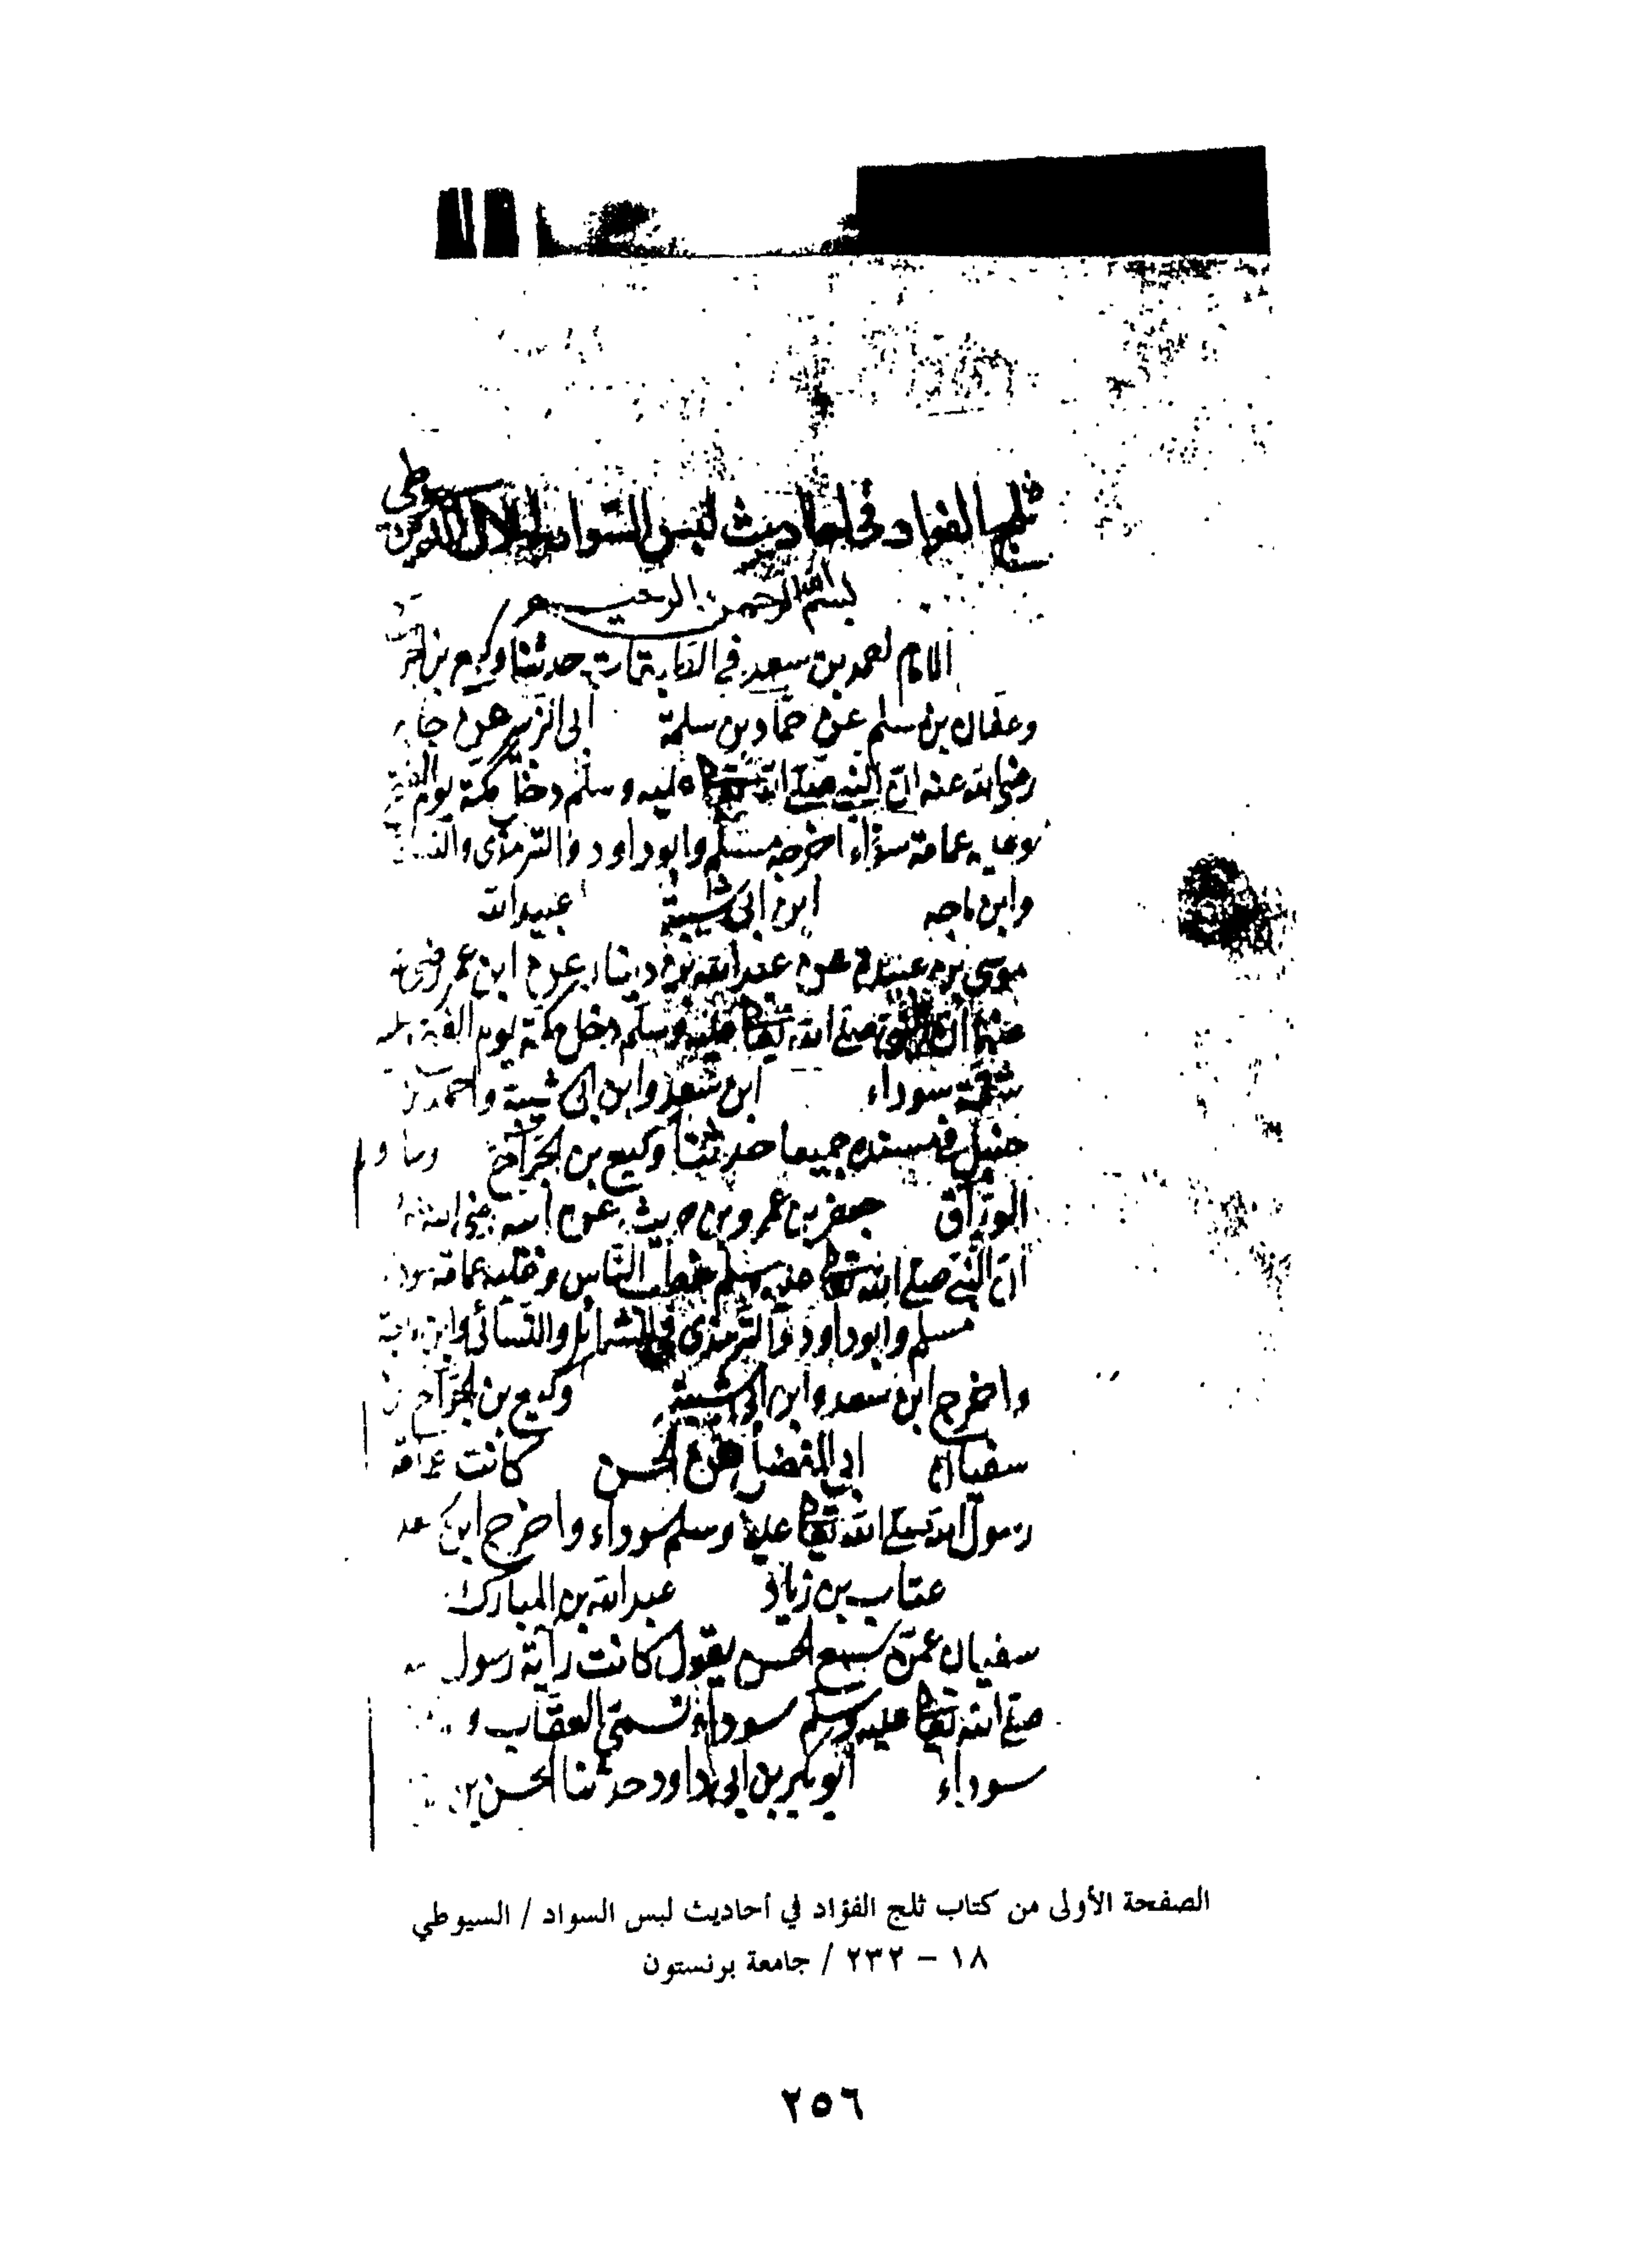 ثلج الفواد فى احاديث لبس السواد لجلال الدين السيوطى
بسم الله الرحمن الرحيم
الامام محمد بن سعد فى حدثنا وكيع بن
وعفان بن مسلم عن حماد بن سلمة ابى الزبير عن جابر
رضى الله عنه ان النبى صلى الله تعالى عليه وسلم دخل مكة يوم الفتح
وعليه عمامة سوداء اخرجه مسلم وابو داود والترمذى والنسائى
وابن ماجه ابن ابى شيبة عبيد الله
موسى بن عبيدة عن عبد الله بن دينار عن ابن عمر رضى
عنهما ان صلى الله تعالى عليه وسلم دخل مكة يوم الفتح
شقة سوداء ابن سعد وابن ابى شيبة واحمد بن
حنبل فى مسنده جميعا حدثنا وكيع بن الجراح
الوراق جعفر بن عمرو بن حريث عن ابيه رضى الله
ان النبى صلى الله تعالى عليه وسلم خطب الناس وعليه عمامة
مسلم وابو داود والترمذى فى الشمائل والنسائى وابن ماجة
واخرج ابن سعد وابن ابى شيبة وكيع بن الجراح
سفيان ابى الفضل عن الحسن كانت عمامة
رسول الله صلى الله تعالى عليه وسلم سوداء واخرج ابن
عتاب بن زياد عبد الله بن المبارك
سفيان عمن سمع الحسن يقول كانت راية رسول
صلى الله تعالى عليه وسلم سوداء تسمى العقاب و
سوداء ابو بكر بن ابى داود حدثنا الحسن بن
الصفحة الأولى من كتاب ثلج الفؤاد في أحاديث لبس السواد / السيوطي
١٨ – ٢٣٢ / جامعة برنستون
٢٥٦